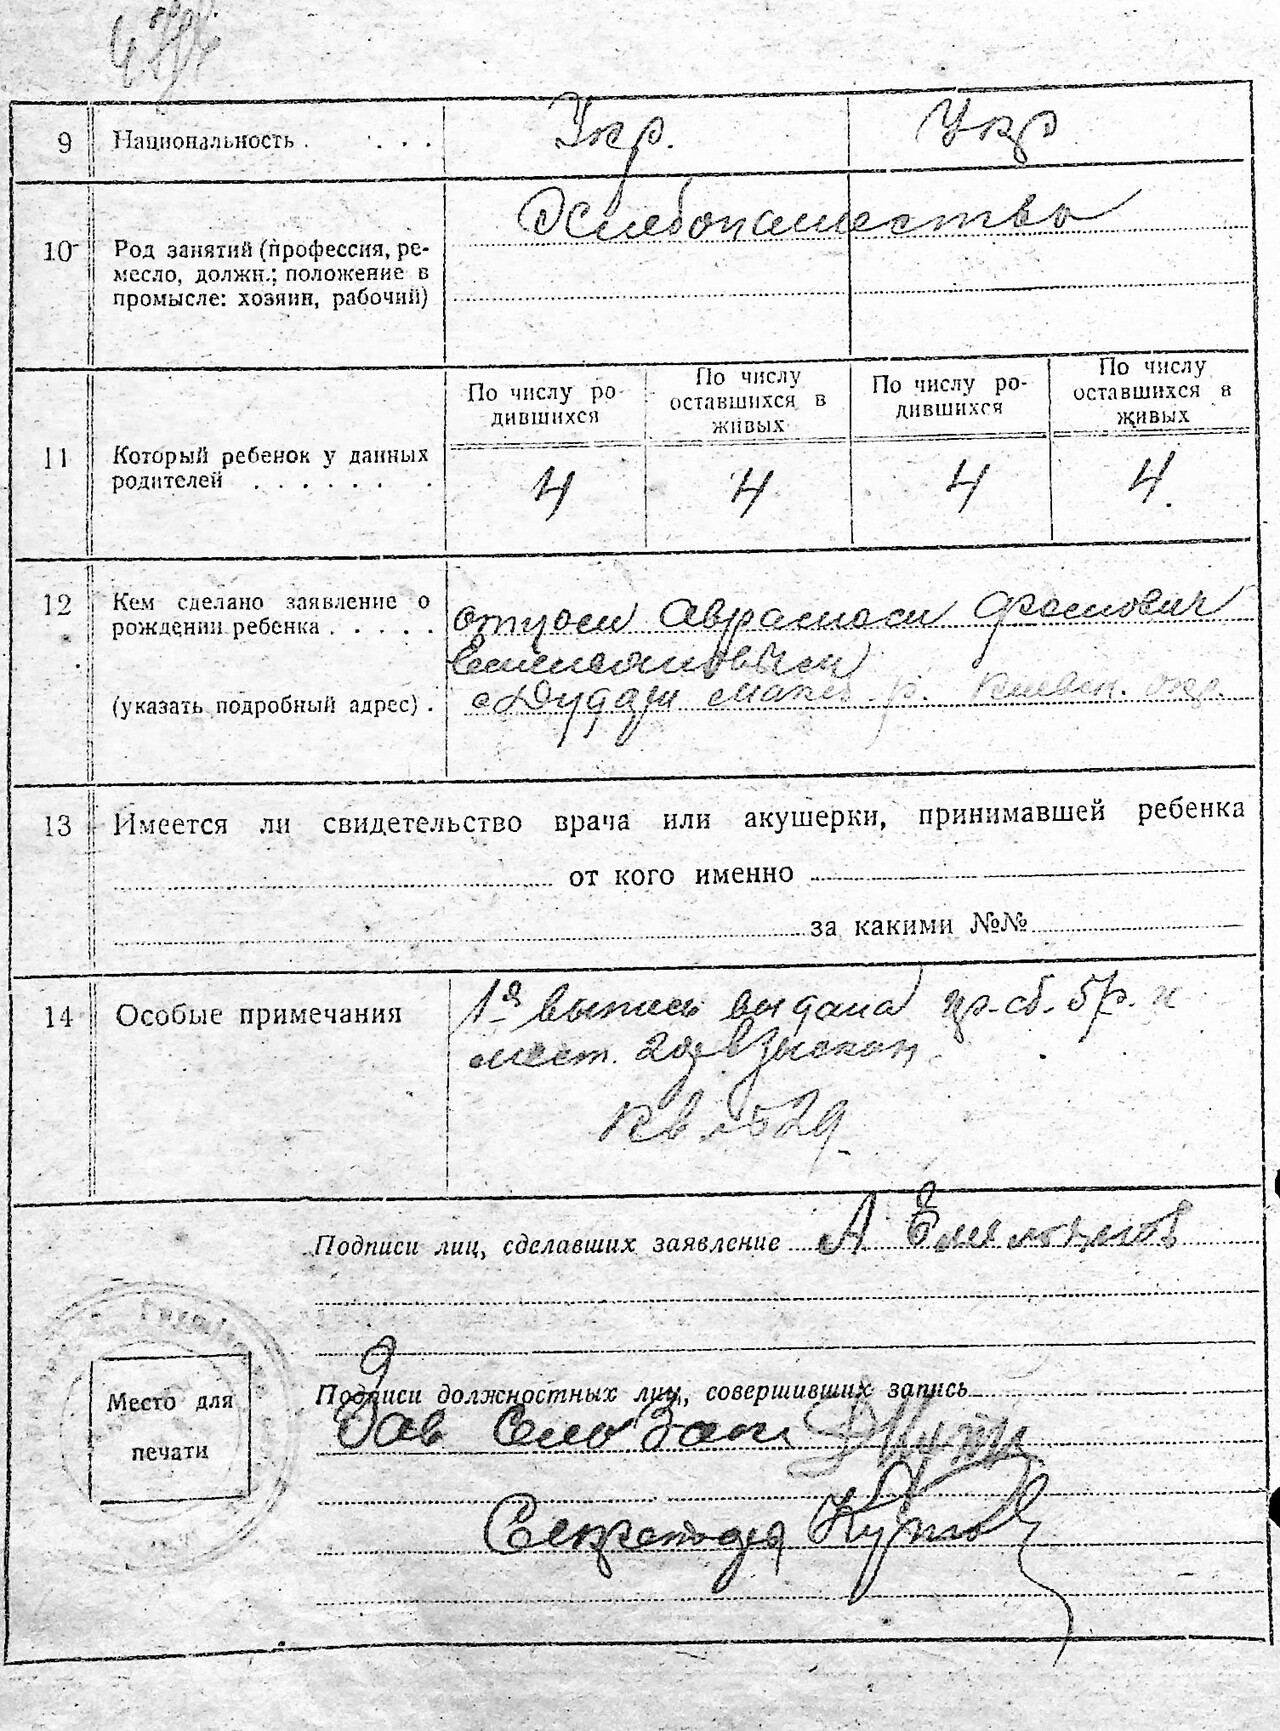 9 Национальность . . . . Укр. Укр
10 Род занятий (профессия, ре-
месло, должн.; положение в
промысле: хозяин, рабочий)
Хлебопашество
11 Который ребенок у данных
родителей . . . . . . .
По числу ро-
дившихся
По числу
оставшихся в
живых
По числу ро-
дившихся
По числу
оставшихся в
живых
4 4 4 4.
12 Кем сделано заявление о
рождении ребенка . . . . .
(указать подробный адрес) .
отцом Аврамом Фомович
Емельяновым
с. Киевск. окр.
13 Имеется ли свидетельство врача или акушерки, принимавшей ребенка
от кого именно
за какими №№
14 Особые примечания
1я выпись выдана 5р. и
мест. взыскан
Кв. 529
Подписи лиц, сделавших заявление А Емельянов
Подписи должностных лиц, совершивших запись
Зав
Секретарь
Место для
печати